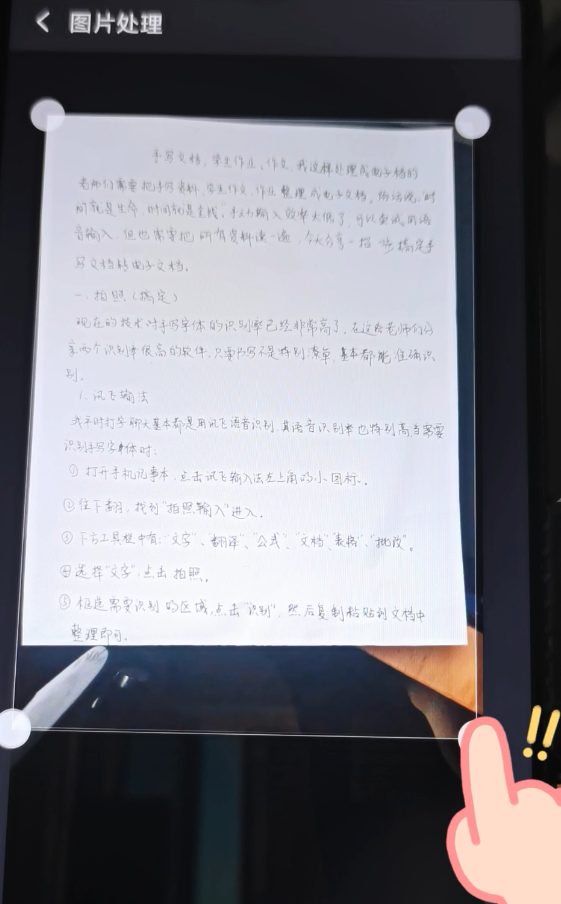 图片处理
手写文档、学生作业、作文,我这样处理成电子档的
老师们需要把手写资料、学生作文、作业整理成电子文档。俗话说,"时
间就是生命,时间就是金钱",手动输入效率太低了,可以变成用语
音输入,但也需要把所有资料读一遍,今天分享一招一步搞定手
写文档转电子文档。
一、拍照(搞定)
现在的技术对手写字体的识别率已经非常高了,在这给老师们分
享两个识别率很高的软件,只要书写不是特别潦草,基本都能准确识
别。
1、讯飞输法
我平时打字聊天基本都是用讯飞语音识别,其语音识别率也特别高,当需要
识别手写字体时:
①打开手机记事本,点击讯飞输入法左上角的小图标。
②往下翻,找到"拍照输入"进入。
③下方工具栏中有:"文字"、"翻译"、"公式"、"文档"、"表格"、"批改"。
④选择"文字",点击拍照。
⑤框选需要识别的区域,点击"识别",然后复制粘贴到文档中
整理即可。
!!